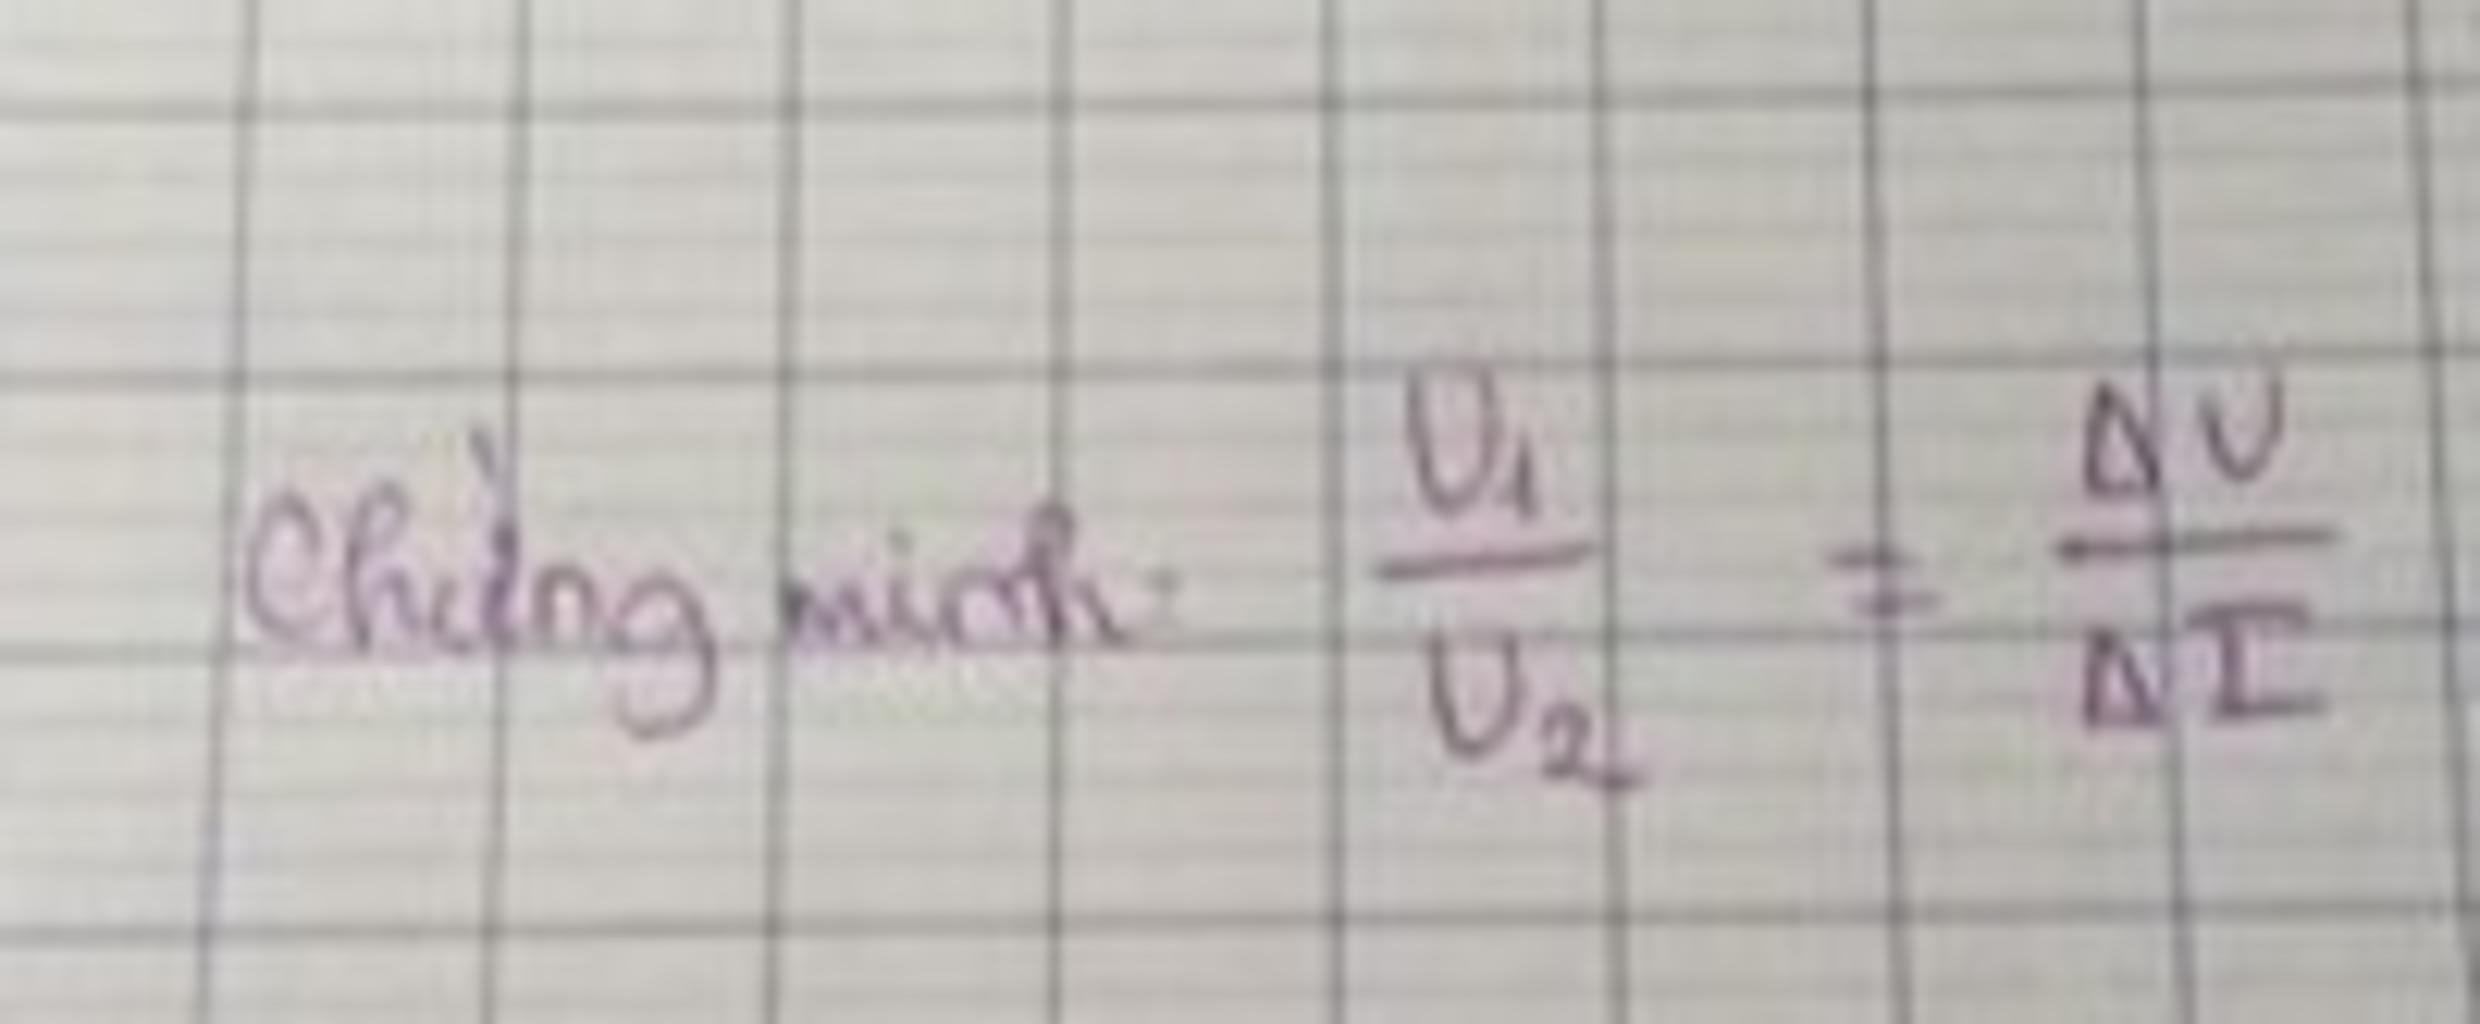 Chứng minh: U₁/U₂ = ΔU/ΔI